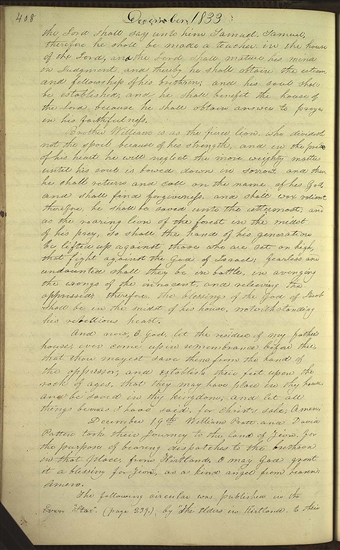 408 December 1833.
the Lord shall say unto him Samuel, Samuel,
therefore he shall be made a teacher in the house
of the Lord, and the Lord shall mature his mind
in Judgment, and thereby he shall obtain the esteem
and fellowship of his brethren, and his soul shall
be established, and he shall benefit the house of
the Lord, because he shall obtain answer to prayer
in his faithfulness.
Brother William is as the fierce lion, who divideth
not the spoil because of his strength, and in the pride
of his heart he will neglect the more weighty matters
until his soul is bowed down in sorrow, and then
he shall return and call on the name of his God,
and shall find forgiveness, and shall wax valient,
therefore he shall be saved unto the uttermost, and
as the roaring lion of the forest in the midst
of his prey, so shall the hand of his generation
be lifted up against those who are set on high,
that fight against the God of Israel; fearless and
undaunted shall they be in battle, in avenging
the wrongs of the innocent, and relieving the
oppressed; therefore the blessings of the God of Jacob
shall be in the midst of his house, notwithstanding
his rebellious heart.
And now, O God, let the residue of my father's
house, ever come up in remembrance before thee,
that thou mayest save them from the hand of
the oppressor, and establish their feet upon the
rock of ages, that they may have place in thy house
and be saved in thy kingdom, and let all
things be even as I have said, for Christ's sake, Amen.
December 19th William Pratt and David
Patten took their Journey to the land of Zion, for
the purpose of bearing dispatches to the brethren
in that place, from Kirtland. O may God grant
it a blessing for Zion, as a kind angel from heaven.
Amen.
The following circular was published in the
Star (page 239,) by the Elders in Kirtland, to their